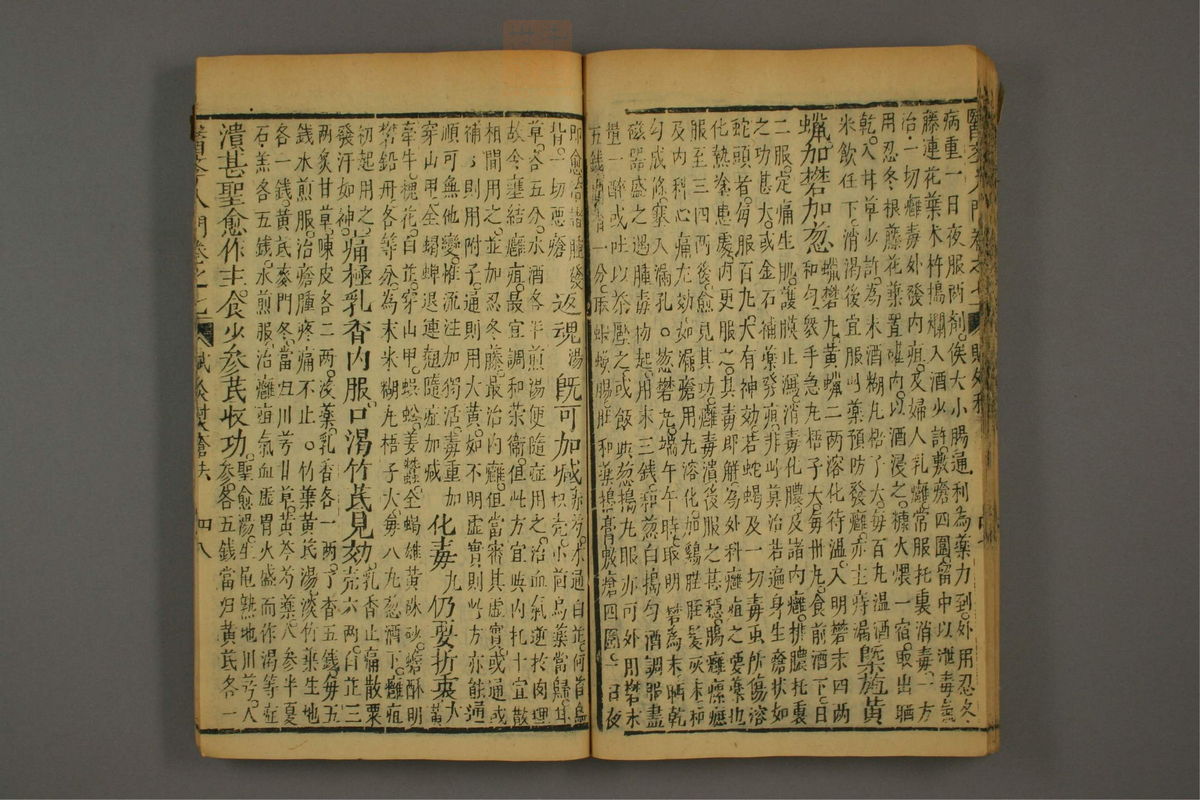 醫學入門卷之七
病重一日夜服兩劑俟大小腸通利為藥力到外用忍冬
藤連花葉木杵搗爛入酒少許敷瘡四圍留中以泄毒氣
治一切癰毒外發內疽及婦人乳癰常服托裏消毒一方
用忍冬根藤花藥置礶內以酒浸之糠火煨一宿取出晒
乾入甘草少許為末酒糊丸梧子大每百丸溫酒
米飲任下消渴後宜服此藥預防發癰亦主痔漏 槩施黃
蠟加礬加葱 蠟礬丸黃蠟二兩溶化待溫入明礬末四兩
和勻衆手急丸梧子大每卅丸食前酒下日
二服定痛生肌護膜止瀉消毒化膿及諸內癰排膿托裏
之功甚大或金石補藥發疽非此莫治若遍身生瘡狀如
蛇頭者每服百丸尤有神効若蛇蝎及一切毒虫所傷溶
化熱塗患處內更服之其毒即解為外科癰疽之要藥也
服至三四兩後愈見其功癰毒潰後服之甚穩腸癰瘰癧
及內科心痛尤効如漏瘡用丸溶化加鷄胵胵髮灰末和
勾成條寒入漏孔 葱礬丸端午午時取明礬為末晒乾
磁器盛之遇腫毒初起用末三錢和葱白搗勻酒調服盡
量一醉或吐以茶壓之或飯與葱搗丸服亦可外用礬末
五錢 一分 和藥搗膏敷瘡四圍一日夜
即愈治諸腫發
背一切惡瘡 返魂湯既可加減 木通白芷何首烏
草各五分水酒各半煎湯便隨症用之治血氣逆於肉理
故令壅結癰疽最宜調和榮衛但此方宜與內托十宣散
相間用之並加忍冬藤最治內癰但當審其虛實或通或
補則用附子通則用大黃如不明虛實則此方亦能通
順可無他變惟流注加獨活毒重加
穿山甲全蝎蟬退連翹隨症加減 化毒丸仍要折衷大黃
牽牛槐花白芷穿山甲蜈蚣姜蠶全蝎雄黃硃砂蟾酥明
礬鉛丹各等分為末米糊丸梧子大每八九葱酒下癰疽
初起用之 痛極乳香內服口渴竹芪見効 乳香止痛散粟
發汗如神 殼六兩白芷三
兩炙甘草陳皮各二兩沒藥乳香各一兩丁香五錢每五
錢水煎服治瘡腫疼痛不止 竹葉黃芪湯淡竹葉生地
各一錢黃芪麥門冬當歸川芎甘草黃芩芍藥人參半夏
石羔各五錢水煎服治癰疽氣血虛胃火盛而作渴等症
潰甚聖愈作主食少參芪收功 聖愈湯生地熟地川芎人
參各五錢當歸黃芪各一
醫學入門卷之七 四八